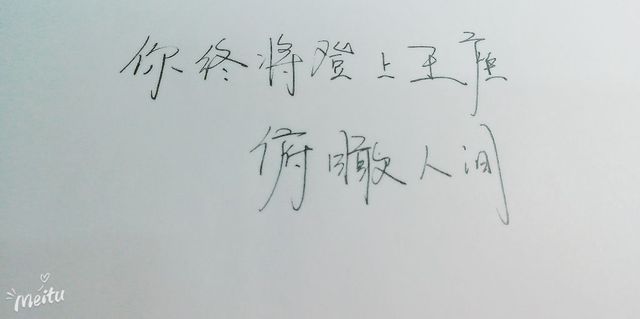 你终将登上王座
俯瞰人间
Meitu